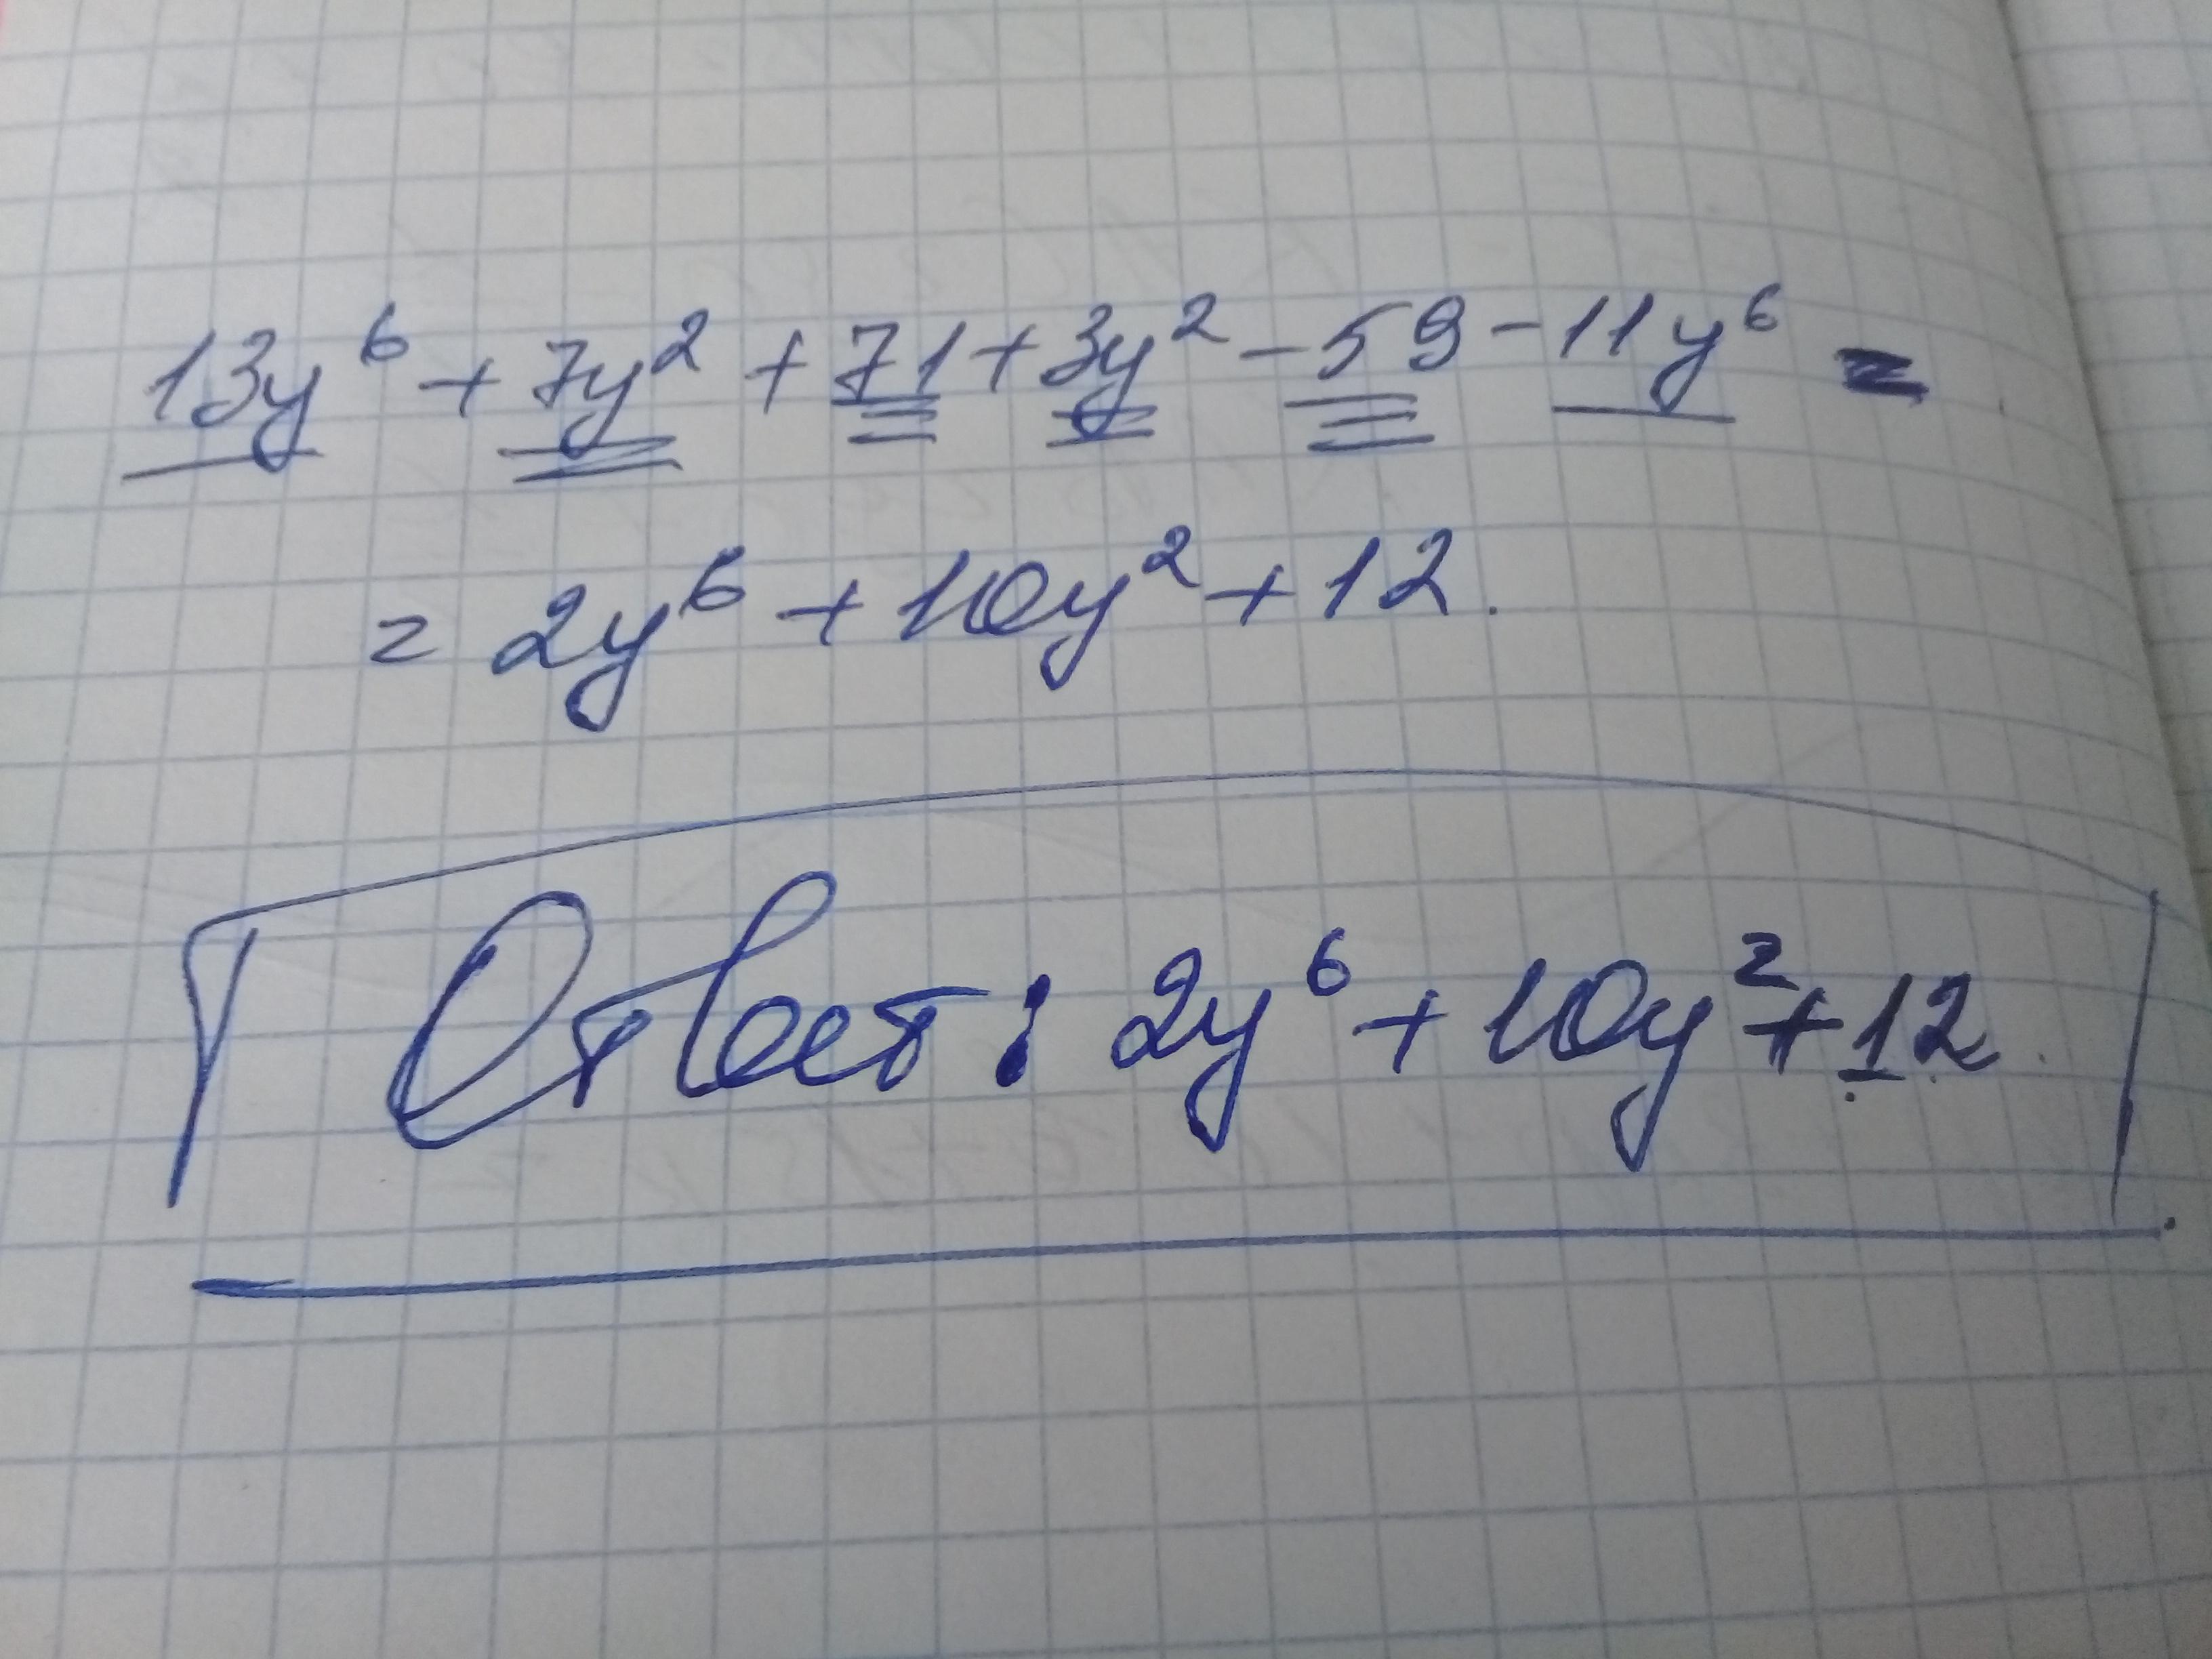 13y⁶ + 7y² + 71 + 3y² - 59 - 11y⁶ =
= 2y⁶ + 10y² + 12.
Ответ: 2y⁶ + 10y² + 12.